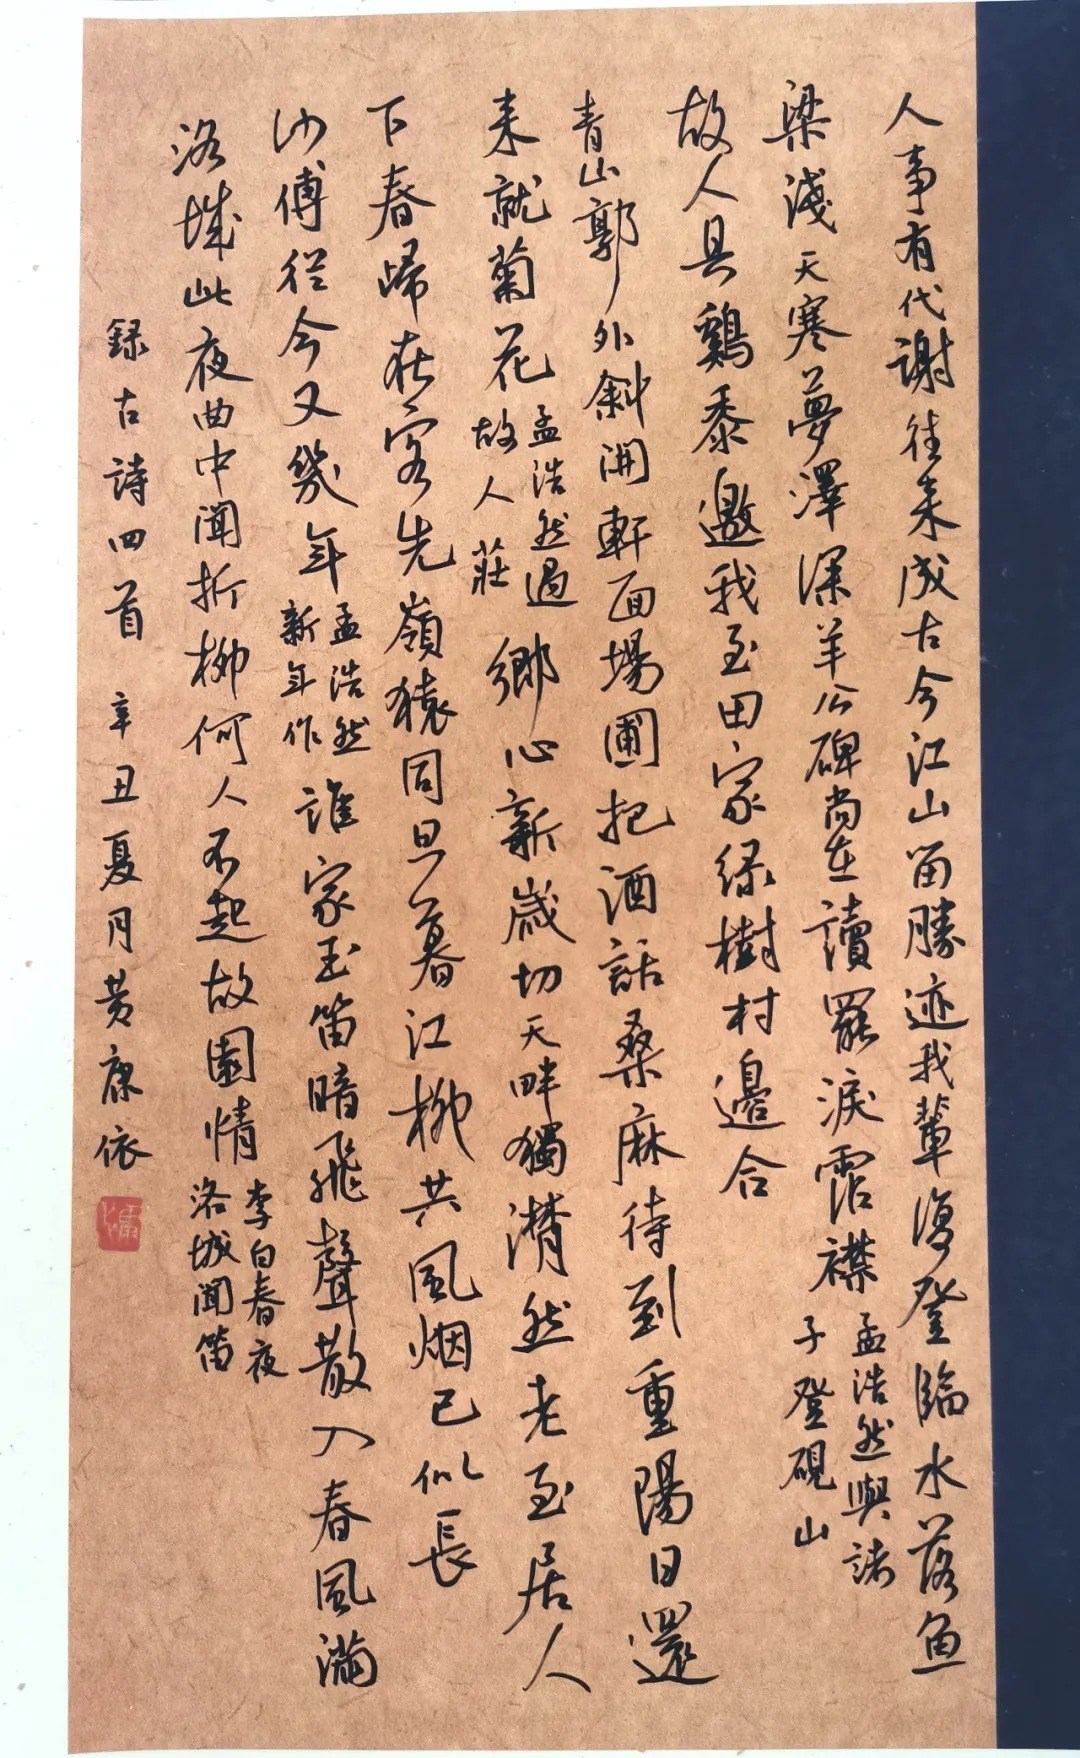 人事有代謝往来成古今江山留勝迹我輩復登臨水落魚
梁淺天寒夢澤深羊公碑尚在讀罷淚霑襟
孟浩然與諸
子登硯山
故人具鷄黍邀我至田家綠樹村邊合
青山郭外斜開軒面場圃把酒話桑麻待到重陽日還
来就菊花
孟浩然過
故人莊
鄉心新歲切天畔獨潸然老至居人
下春歸在客先嶺猿同旦暮江柳共風烟已似長
沙傅從今又幾年
孟浩然
新年作
誰家玉笛暗飛聲散入春風滿
洛城此夜曲中聞折柳何人不起故園情
李白春夜
洛城聞笛
録古詩四首 辛丑夏月黄康依